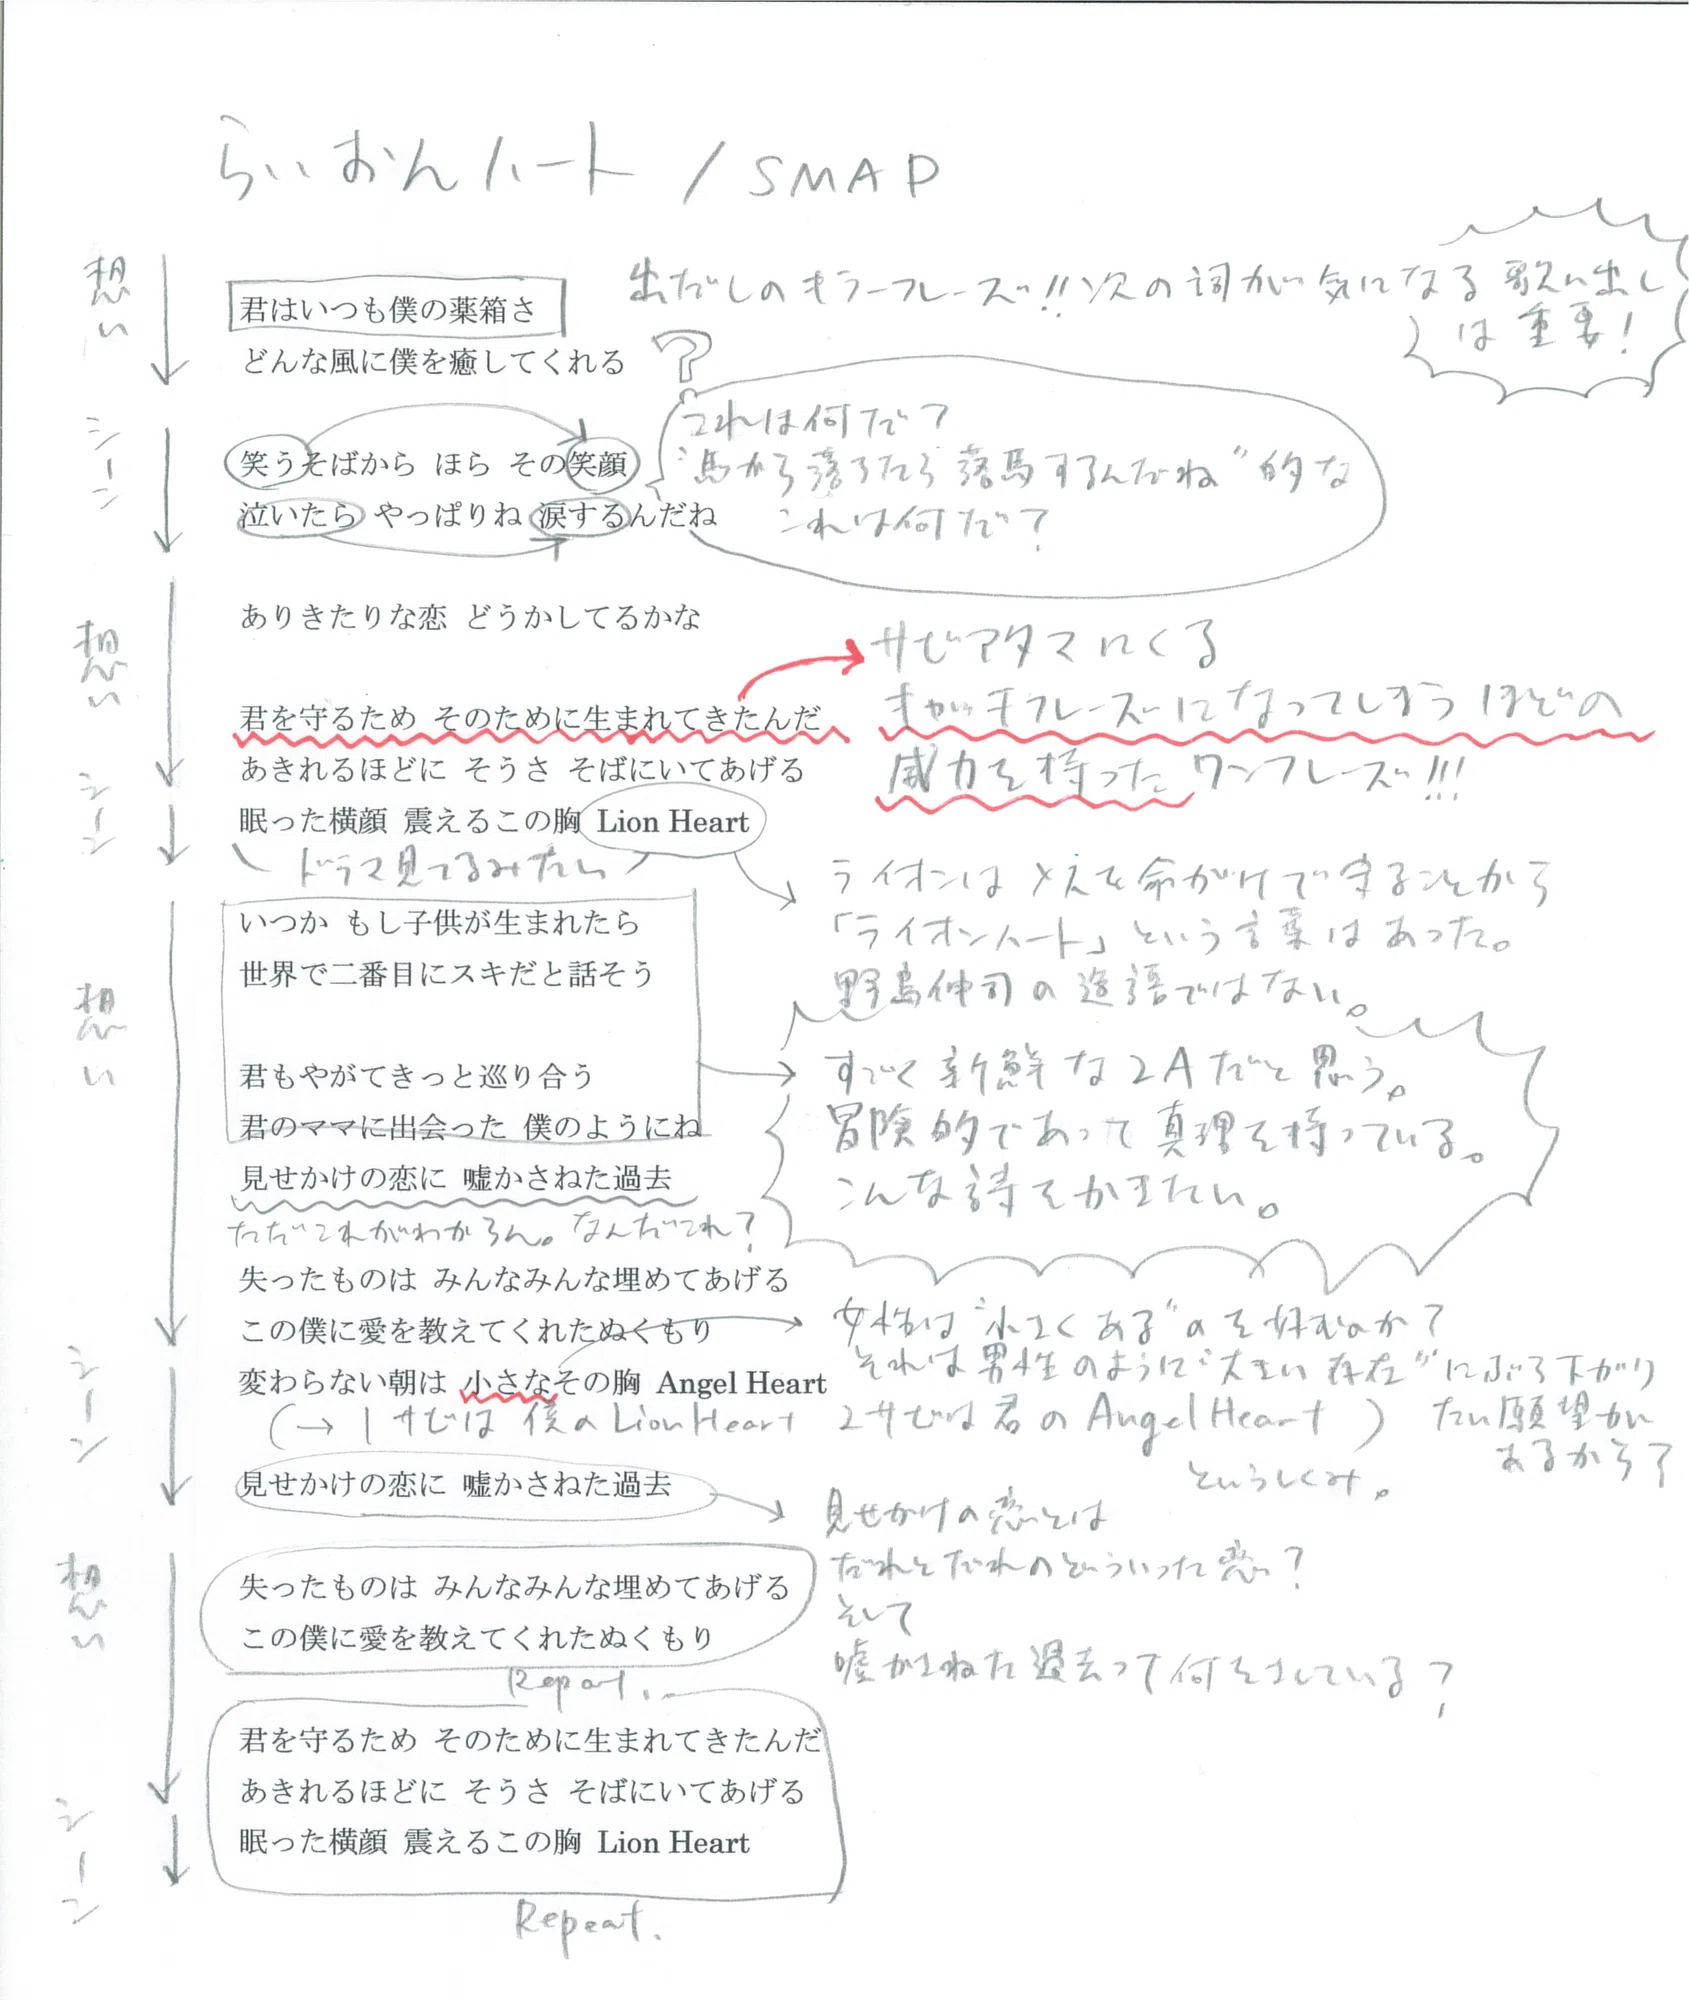 らいおんハート / SMAP
想い
君はいつも僕の薬箱さ
出だしのキラーフレーズ!!次の詞が気になる歌い出し
は重要！
どんな風に僕を癒してくれる
?
シーン
これは何だ？
笑うそばから ほら その笑顔
"馬から落ちたら落馬するんだね"的な
泣いたら やっぱりね 涙するんだね
これは何だ？
想い
ありきたりな恋 どうかしてるかな
サビアタマにくる
君を守るため そのために生まれてきたんだ
キャッチフレーズになってしまうほどの
あきれるほどに そうさ そばにいてあげる
威力を持ったワンフレーズ!!!
シーン
眠った横顔 震えるこの胸 Lion Heart
ドラマ見てるみたい
ライオンはメスを命がけで守ることから
「ライオンハート」という言葉はあった。
野島伸司の造語ではない。
想い
いつか もし子供が生まれたら
世界で二番目にスキだと話そう
君もやがてきっと巡り合う
君のママに出会った 僕のようにね
すごく新鮮な2Aだと思う。
冒険的であって真理を持っている。
こんな詩をかきたい。
見せかけの恋に 嘘かさねた過去
ただこれがわからん。なんだこれ？
失ったものは みんなみんな埋めてあげる
この僕に愛を教えてくれたぬくもり
女性は"小さくある"のを好むのか？
それは男性のように"大きい存在"にぶら下がり
たい願望が
あるから？
シーン
変わらない朝は 小さなその胸 Angel Heart
(→1サビは 僕のLion Heart 2サビは君のAngel Heart)
というしくみ。
見せかけの恋に 嘘かさねた過去
見せかけの恋とは
だれとだれのどういった恋？
そして
嘘かさねた過去って何をさしている？
想い
失ったものは みんなみんな埋めてあげる
この僕に愛を教えてくれたぬくもり
Repeat..
君を守るため そのために生まれてきたんだ
あきれるほどに そうさ そばにいてあげる
シーン
眠った横顔 震えるこの胸 Lion Heart
Repeat.